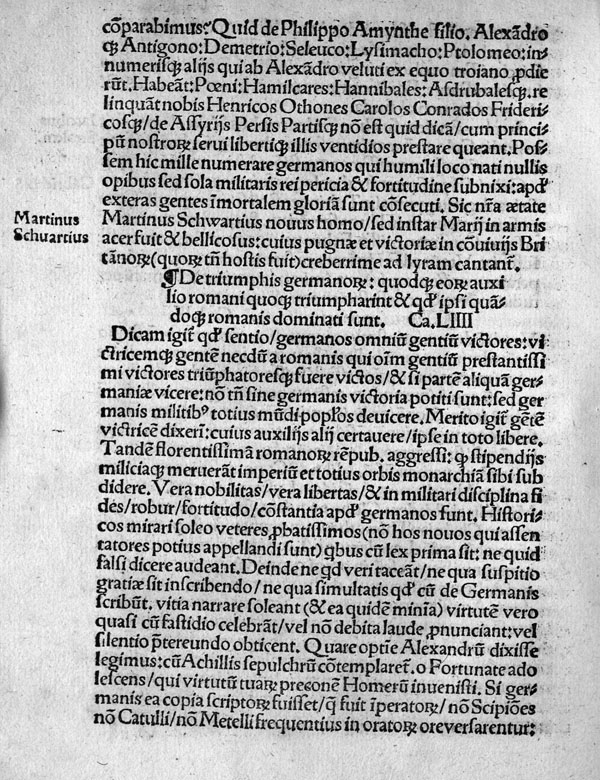 cõparabimus: Quid de Philippo Amynthe filio. Alexãdro
qꝫ Antigono: Demetrio: Seleuco: Lysimacho: Ptolomeo: in⸗
numerisqꝫ alijs qui ab Alexãdro veluti ex equo troiano ꝓdie
rũt. Habeãt: Pœni: Hamilcares: Hannibales: Asdrubalesqꝫ. re
linquãt nobis Henricos Othones Carolos Conrados Frideri⸗
cosqꝫ/de Assyrijs Persis Partisqꝫ nõ est quid dicã/cum princi⸗
pũ nostroꝝ serui libertiqꝫ illis ventidios prestare queant. Pos⸗
sem hic mille numerare germanos qui humili loco nati nullis
opibus sed sola militaris rei pericia & fortitudine subnixi: apd̕
exteras gentes ĩmortalem gloriã sunt cõsecuti. Sic nr̃a ætate
Martinus
Schuartius
Martinus Schwartius nouus homo/sed instar Marij in armis
acer fuit & bellicosus: cuius pugnæ et victoriæ in cõuiuijs Bri
tãnoꝝ(quoꝝ tñ hostis fuit)creberrime ad lyram cantant̃.
¶ De triumphis germanoꝝ: quodqꝫ eoꝝ auxi
lio romani quoqꝫ triumpharint & qd̕ ipsi quã⸗
doqꝫ romanis dominati sunt. Ca. LIIII
Dicam igit̃ qd̕ sentio/germanos omniũ gentiũ victores: vi
ctricemqꝫ gentẽ necdũ a romanis qui oĩm gentiũ prestantissi
mi victores triũphatoresqꝫ fuere victos/& si partẽ aliquã ger⸗
maniæ vicere: nõ tñ sine germanis victoria potiti sunt: sed ger
manis militibꝰ totius mũdi popłos deuicere. Merito igit̃ gẽtẽ
victricẽ dixerĩ: cuius auxilijs alij certauere/ipse in toto libere.
Tandẽ florentissimã romanoꝝ rẽpub. aggressi: qꝫ stipendijs
miliciaqꝫ meruerãt imperiũ et totius orbis monarchiã sibi sub
didere. Vera nobilitas/vera libertas/& in militari disciplina fi
des/robur/fortitudo/cõstantia apd̕ germanos sunt. Histori⸗
cos mirari soleo veteres ꝓbatissimos (nõ hos nouos qui assen
tatores potius appellandi sunt) qbus cũ lex prima sit: ne quid
falsi dicere audeant. Deinde ne qd veri taceãt/ne qua suspitio
gratiæ sit inscribendo/ne qua simultatis qd̕ cũ de Germanis
scribũt. vitia narrare soleant (& ea quidẽ minĩa) virtutẽ vero
quasi cũ fastidio celebrãt/vel nõ debita laude ꝓnunciant: vel
silentio p̃tereundo obticent. Quare optĩe Alexandrũ dixisse
legimus: cũ Achillis sepulchrũ cõtemplaret̃. o Fortunate ado
lescens/qui virtutũ tuaꝝ preconẽ Homerũ inuenisti. Si ger⸗
manis ea copia scriptoꝝ fuisset/q̃ fuit ĩperatoꝝ/nõ Scipiões
nõ Catulli/nõ Metelli frequentius in oratoꝝ ore versarentur: